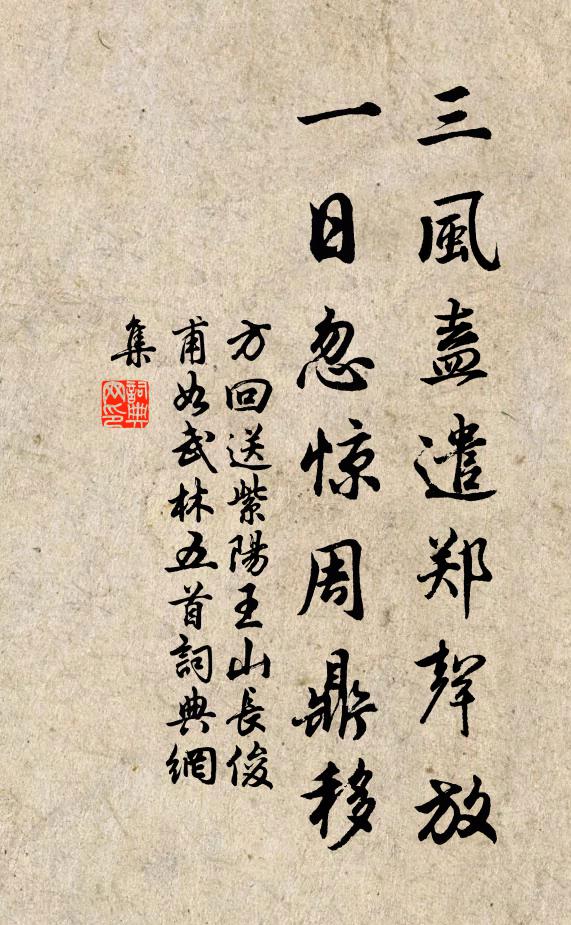 三風盍遣郑聲放
一日忽惊周鼎移
方回送紫陽王山長俊
甫如武林五首詞典網
集
詞典网印